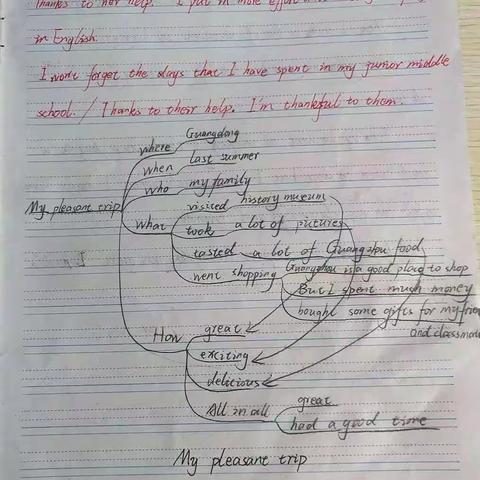 Thanks to her help. I put in more effort
in English.
I won't forget the days that I have spent in my junior middle
school. / Thanks to their help. I'm thankful to them.
My pleasant trip
where Guangdong
when last summer
who my family
what visited history museum
took a lot of pictures
tasted a lot of Guangzhou food
went shopping Guangzhou is a good place to shop
But I spent much money
bought some gifts for my
and
How great
exciting
delicious
All in all great
had a good time
My pleasant trip